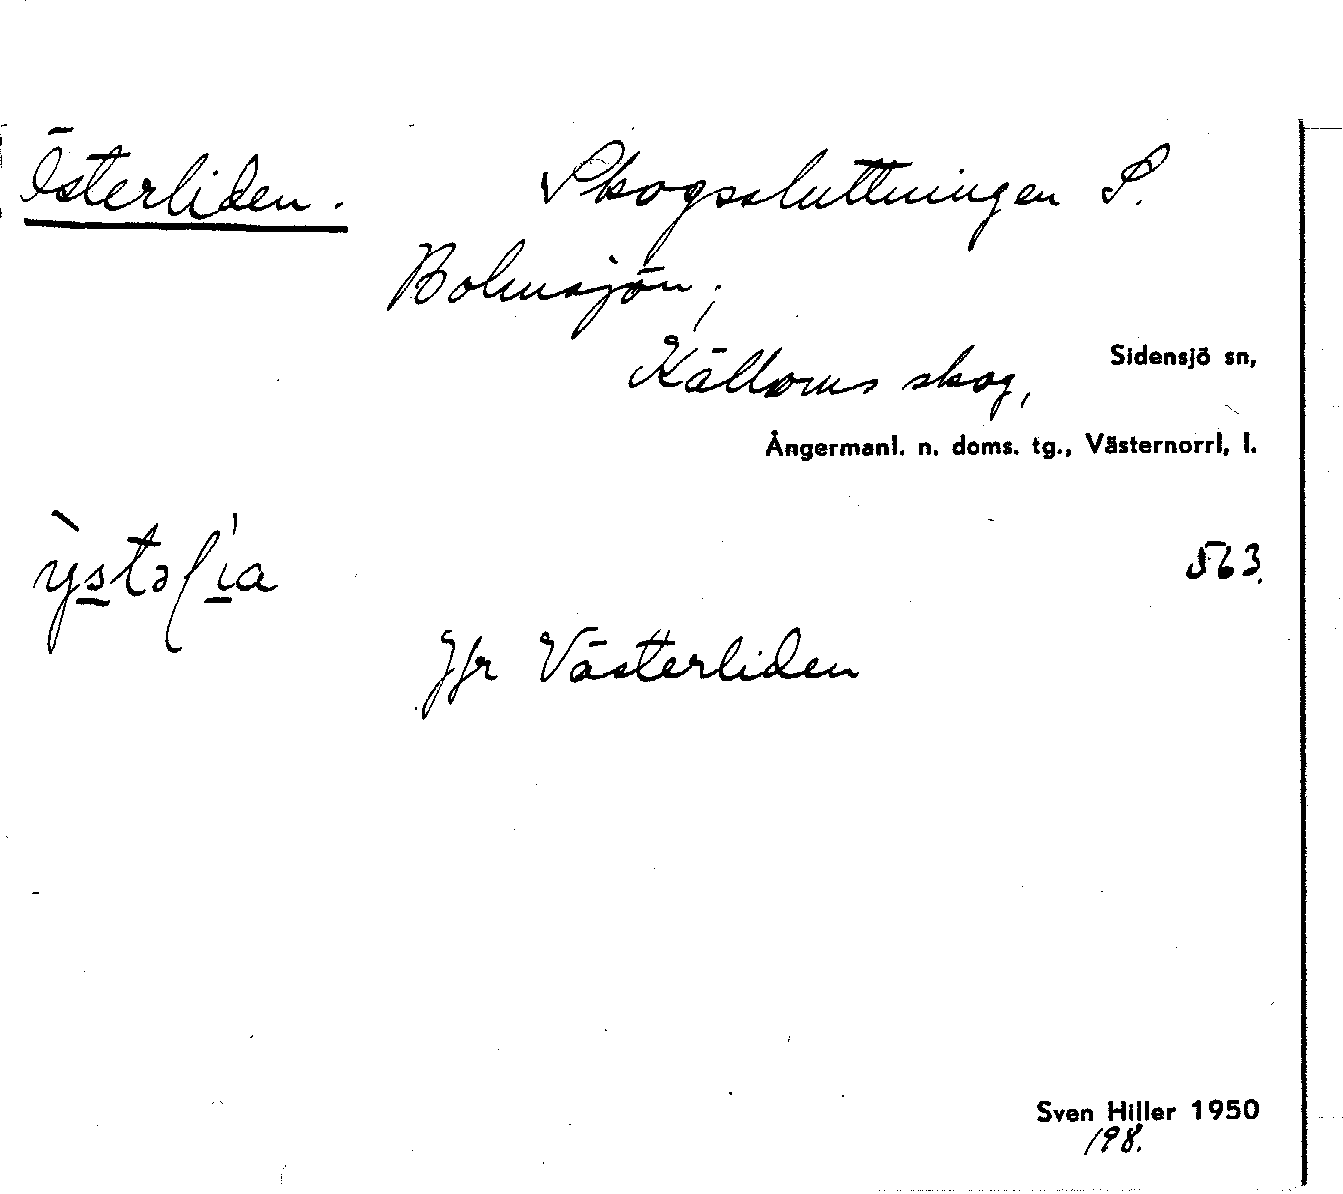 Österliden. Skogssluttningen S.
Bolmsjön;
Källoms skog, Sidensjö sn,
Ångermanl. n. doms. tg., Västernorrl, l.
563.
Jfr Västerliden
Sven Hiller 1950
198.